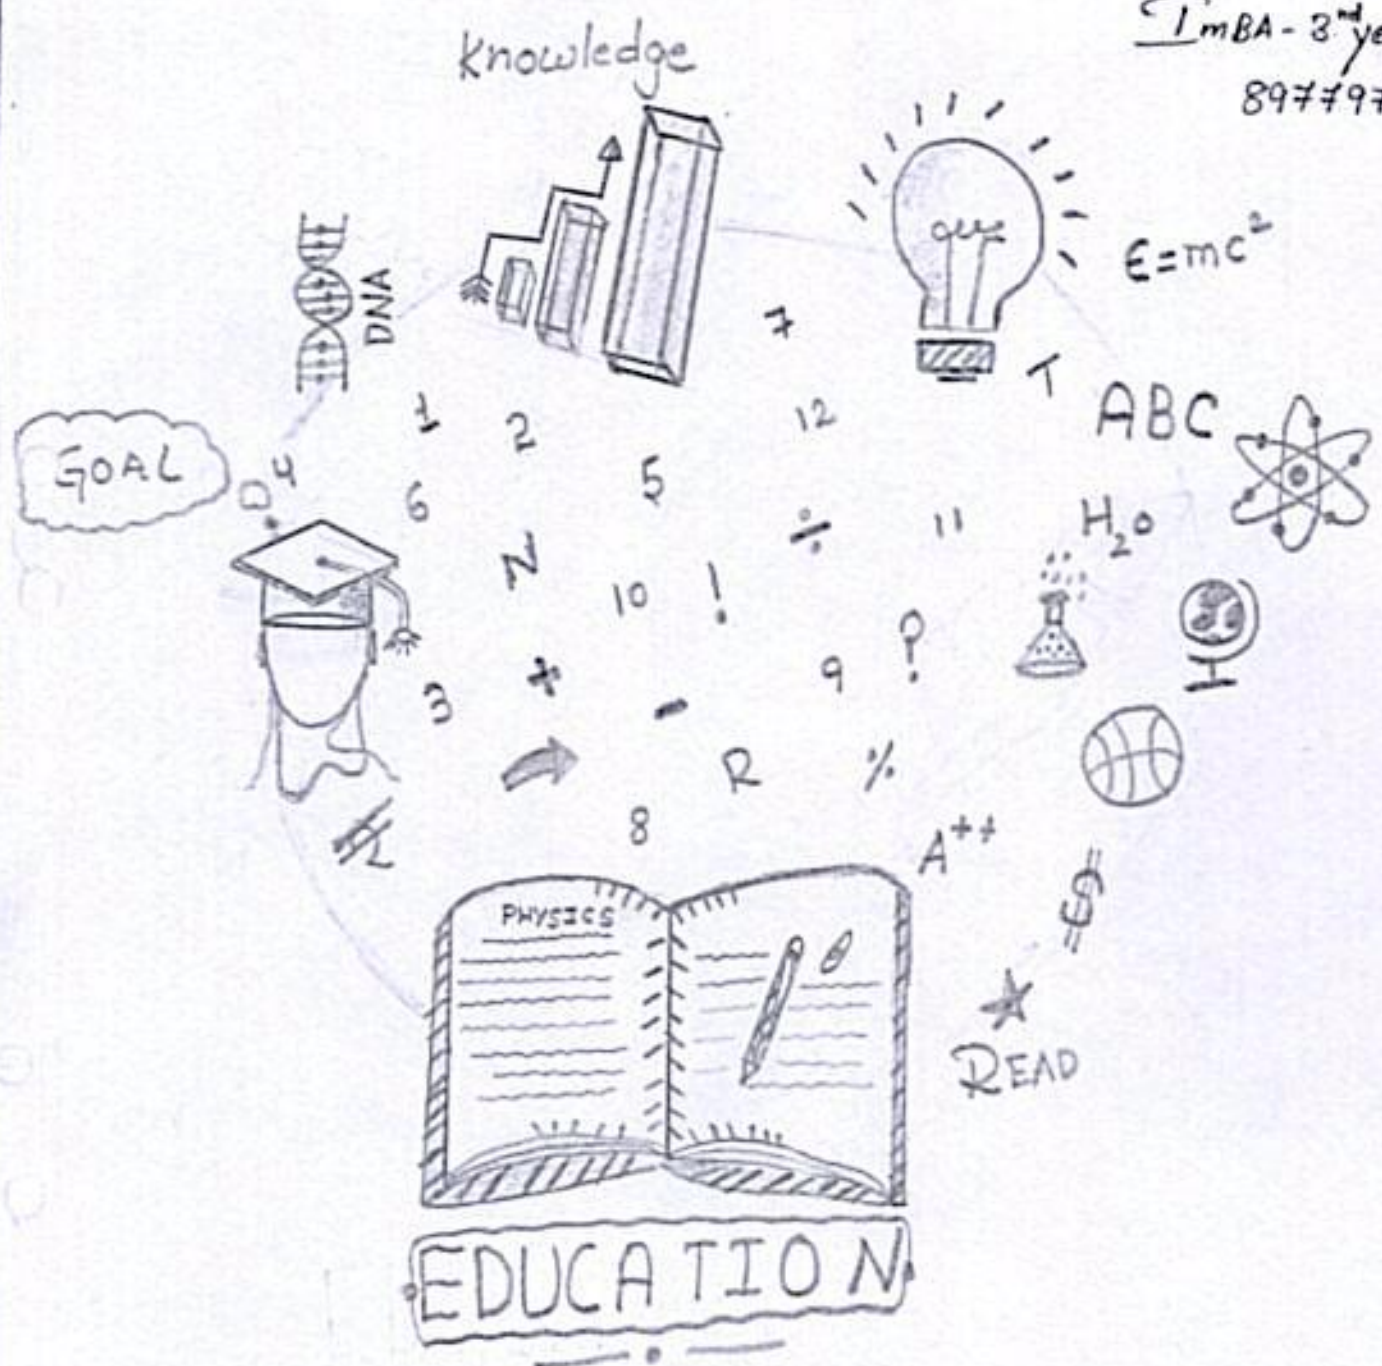 ImBA - 3rd ye
897797
Knowledge
E=mc²
DNA
7
T
1
2
12
ABC
GOAL
4
6
5
÷
11
H₂O
N
10
!
9
?
3
+
-
R
%
8
A++
$
PHYSICS
READ
EDUCATION